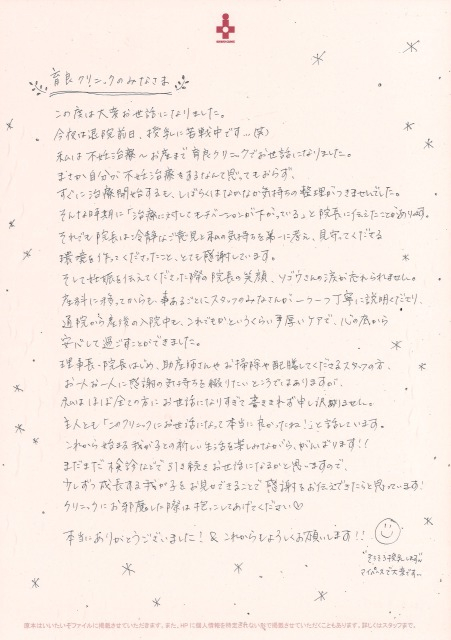 育良クリニックのみなさま
この度は大変お世話になりました。
今夜は退院前日、授乳に苦戦中です…(笑)
私は不妊治療〜お産まで育良クリニックでお世話になりました。
まさか自分が不妊治療をするなんて思ってもおらず、
すぐに治療開始するも、しばらくはなかなか気持ちの整理がつきませんでした。
そんな時期に「治療に対してモチベーションが下がっている」と院長に伝えたことがあります。
それでも院長は冷静なご意見と私の気持ちを第一に考え、見守ってくださる
環境を作ってくださったこと、とても感謝しています。
そして妊娠を伝えてくださった際の院長の笑顔、リゾウさんの涙が忘れられません。
産科に移ってからも、事あるごとにスタッフのみなさんが一つ一つ丁寧に説明くださり、
通院から産後の入院中も、これでもかというくらい手厚いケアで、心の底から
安心して過ごすことができました。
理事長・院長はじめ、助産師さんやお掃除や配膳してくださるスタッフの方、
お一人お一人に感謝の気持ちを綴りたいところではありますが、
私はほぼ全ての方にお世話になりすぎて書ききれず申し訳ありません。
主人とも「このクリニックにお世話になって本当に良かったね!」と話しています。
これから始まる我が子との新しい生活を楽しみながら、がんばります!!
まだまだ検診などで引き続きお世話になるかと思いますので、
少しずつ成長する我が子をお見せできることで感謝をお伝えできたらと思っています!
クリニックにお邪魔した際は抱っこしてあげてください♡
本当にありがとうございました! & これからもよろしくお願いします!!
マイペースで大変です…
原本はいいたいぞファイルに掲載させていただきます。また、HPに個人情報を特定されない形で掲載させていただくこともあります。詳しくはスタッフまで。